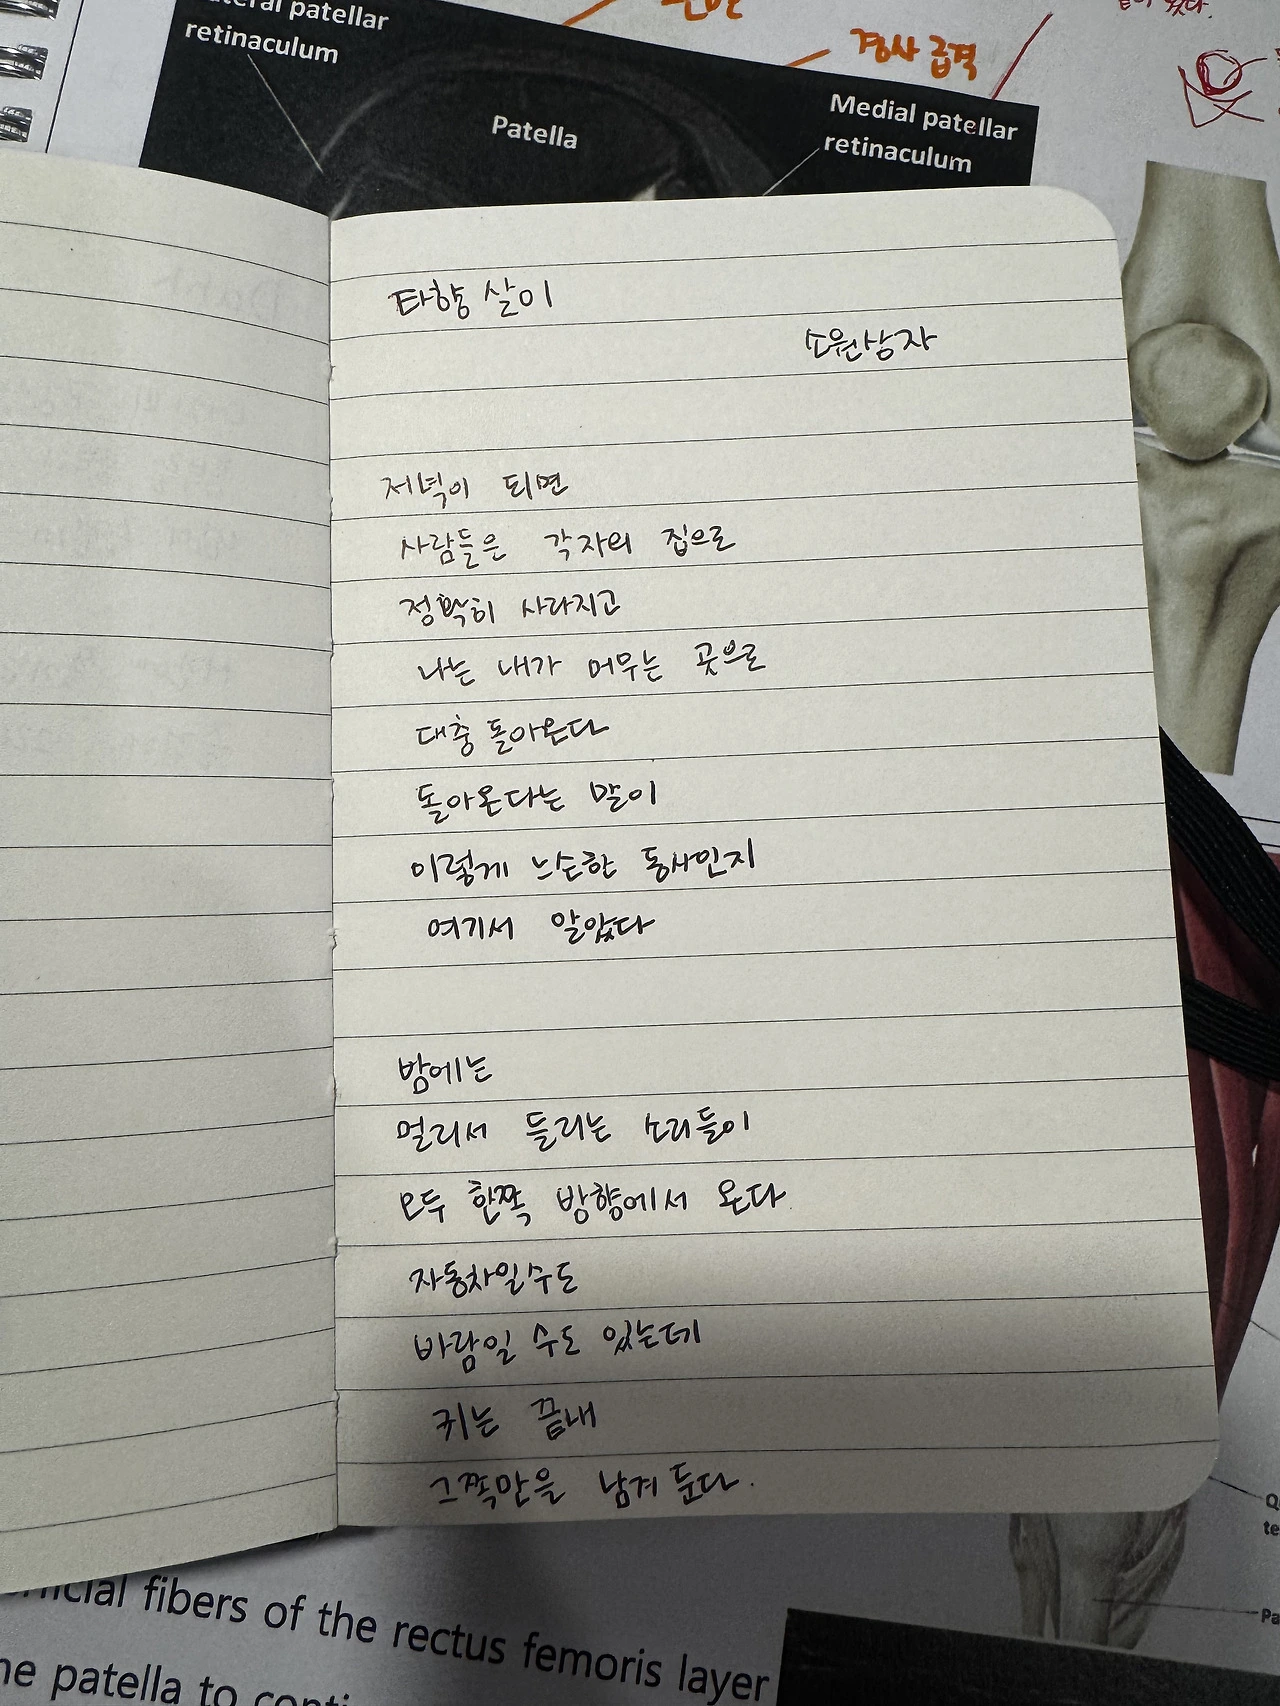 patellar
retinaculum
Patella
경사 급격
Medial patellar
retinaculum
타향살이
소원상자
저녁이 되면
사람들은 각자의 집으로
정확히 사라지고
나는 내가 머무는 곳으로
대충 돌아온다
돌아온다는 말이
이렇게 느슨한 동사인지
여기서 알았다
밤에는
멀리서 들리는 소리들이
모두 한쪽 방향에서 온다
자동차일수도
바람일 수도 있는데
귀는 끝내
그쪽만을 남겨 둔다.
fibers of the rectus femoris layer
patella to